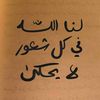 لنا اللّٰه
في كل شعور
لا يحكىٰ